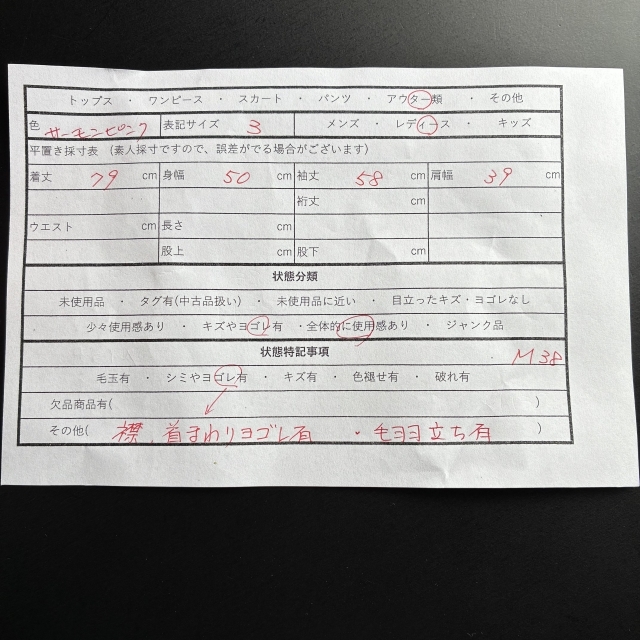 トップス ・ ワンピース ・ スカート ・ パンツ ・ アウター類 ・ その他
色 サーモンピンク 表記サイズ 3 メンズ ・ レディース ・ キッズ
平置き採寸表 (素人採寸ですので、誤差がでる場合がございます)
着丈 79 cm 身幅 50 cm 袖丈 58 cm 肩幅 39 cm
裄丈 cm
ウエスト cm 長さ cm
股上 cm 股下 cm
状態分類
未使用品 ・ タグ有(中古品扱い) ・ 未使用品に近い ・ 目立ったキズ・ヨゴレなし
少々使用感あり ・ キズやヨゴレ有 ・全体的に使用感あり ・ ジャンク品
状態特記事項
M38
毛玉有 ・ シミやヨゴレ有 ・ キズ有 ・ 色褪せ有 ・ 破れ有
欠品商品有( )
その他( 襟、首まわりヨゴレ有 ・毛ヨヨ立ち有 )